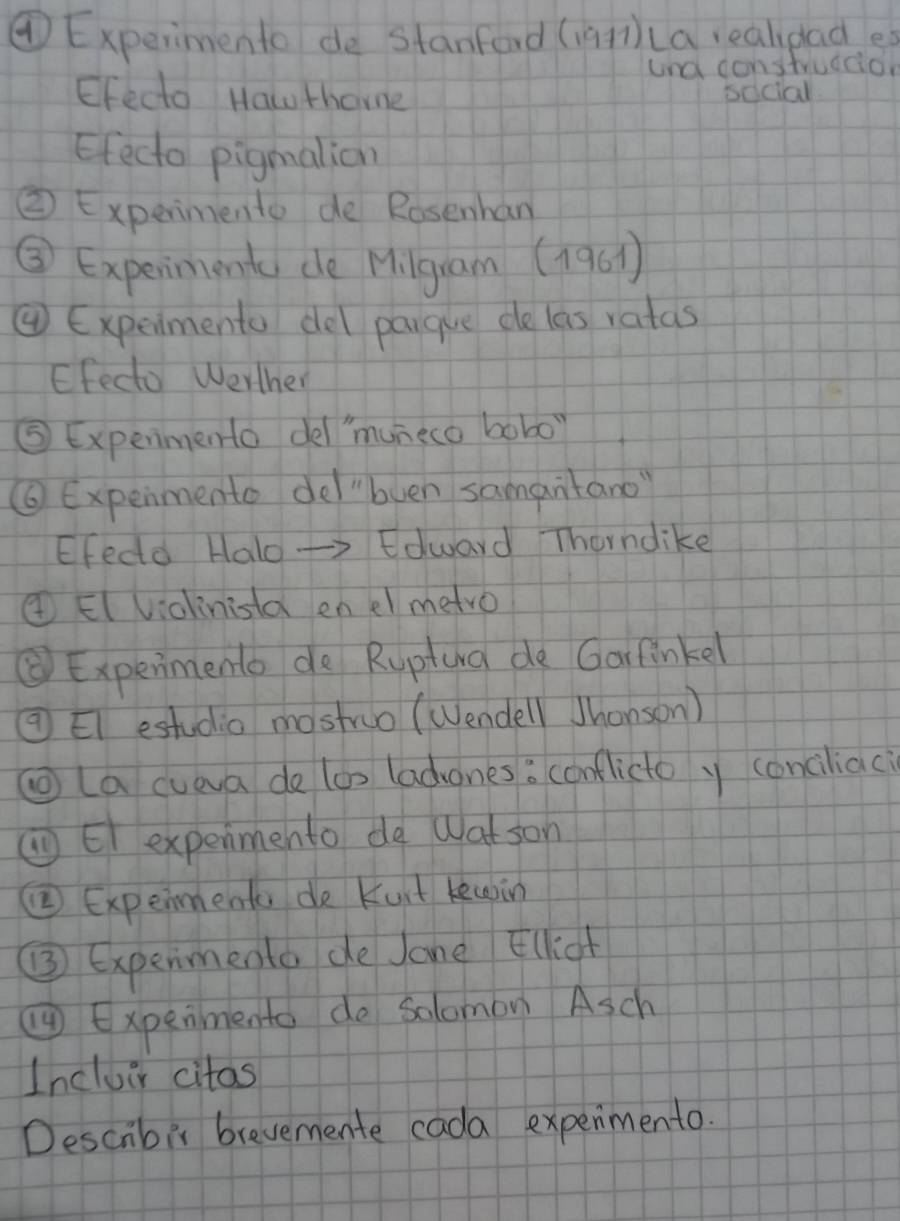 ① Experimento de Stanford (1971) La realidad es
una construcción
social
Efecto Hawthorne
Efecto pigmalion
② Experimento de Rosenhan
③ Experimento de Milgram (1961)
④ Experimento del parque de las ratas
Efecto Werther
⑤ Experimento del "muñeco bobo"
⑥ Experimento del "buen samaritano"
Efecto Halo → Edward Thorndike
⑦ El Violinista en el metro
⑧ Experimento de Ruptura de Garfinkel
⑨ El estudio mostruo (Wendell Jhonson)
⑩ La cueva de los ladrones: conflicto y conciliaci
⑪ El experimento de Watson
⑫ Experimento de Kurt Lewin
⑬ Experimento de Jane Elliot
⑭ Experimento de Solomon Asch
Incluir citas
Describir brevemente cada experimento.